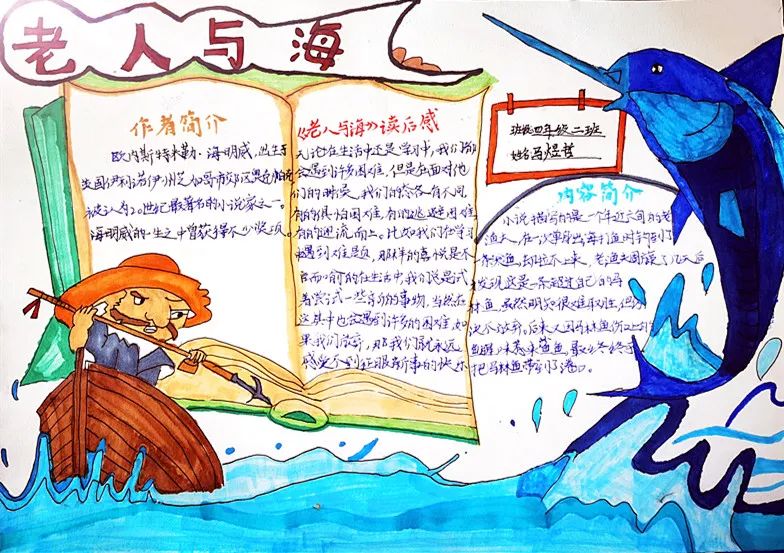 老人与海
作者简介
欧内斯特米勒·海明威,出生于
美国伊利诺伊州芝加哥市郊区奥克帕克
被认为20世纪最著名的小说家之一。
海明威的一生之中曾获得不少奖项。
《老人与海》读后感
无论在生活中还是学习中,我们都
会遇到许多困难,但是在面对他
们的时候,我们的态各有不同
有的惧怕困难,有的逃避困难
有的迎流而上。比如我们在学习
遇到难题,那样的喜悦是不
言而喻的在生活中,我们总是试
着尝试一些新的事物,当然在
这其中也会遇到许多的困难,如
果我们放弃,那我们就永远
感受不到征服新事的快乐
班级四年级二班
姓名马煜哲
内容简介
小说描写的是一个年近六旬的老
渔夫,在一次单身出海打鱼时钓到了
一条大鱼,却拉不上来。老渔夫周旋了几天后
发现这是一条超过自己的马
林鱼,虽然明知很难取胜,但仍
决不放弃。后来又因马林鱼伤口上的
鱼腥味惹来鲨鱼,最后终于
把马林鱼带到了港口。